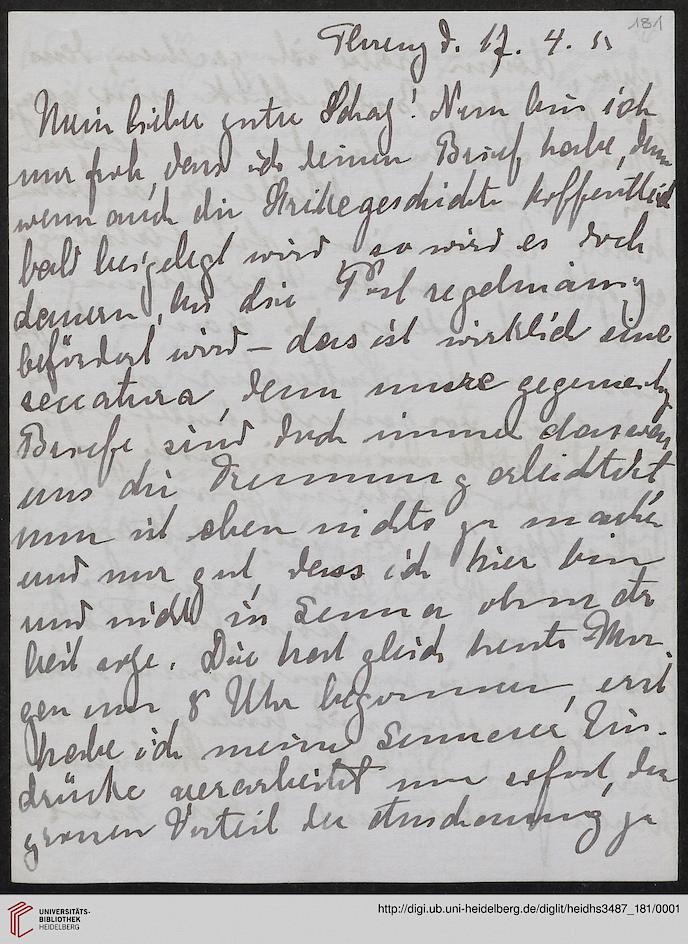 181
Florenz d. 17. 4. 11
Mein lieber guter Schatz! Nun bin ich
nur froh, dass ich deinen Brief habe, denn
wenn auch die Strikegeschichte hoffentlich
bald beigelegt wird so wird es doch
dauern, bis die Post regelmässig
befördert wird – das ist wirklich eine
seccatura, denn unsre gegenseitig
Briefe sind doch immer das was
uns die Trennung erleichtert
nun ist eben nichts zu machen
und nur gut, dass ich hier bin
und nicht in Siena ohne Ar
beit sitze. Die hat gleich heute Mor
gen um 8 Uhr begonnen, erst
habe ich meine Sieneser Ein-
drücke verarbeitet um sofort, den
grossen Vorteil der Anschauung zu
UNIVERSITÄTS-
BIBLIOTHEK
HEIDELBERG
http://digi.ub.uni-heidelberg.de/diglit/heidhs3487_181/0001